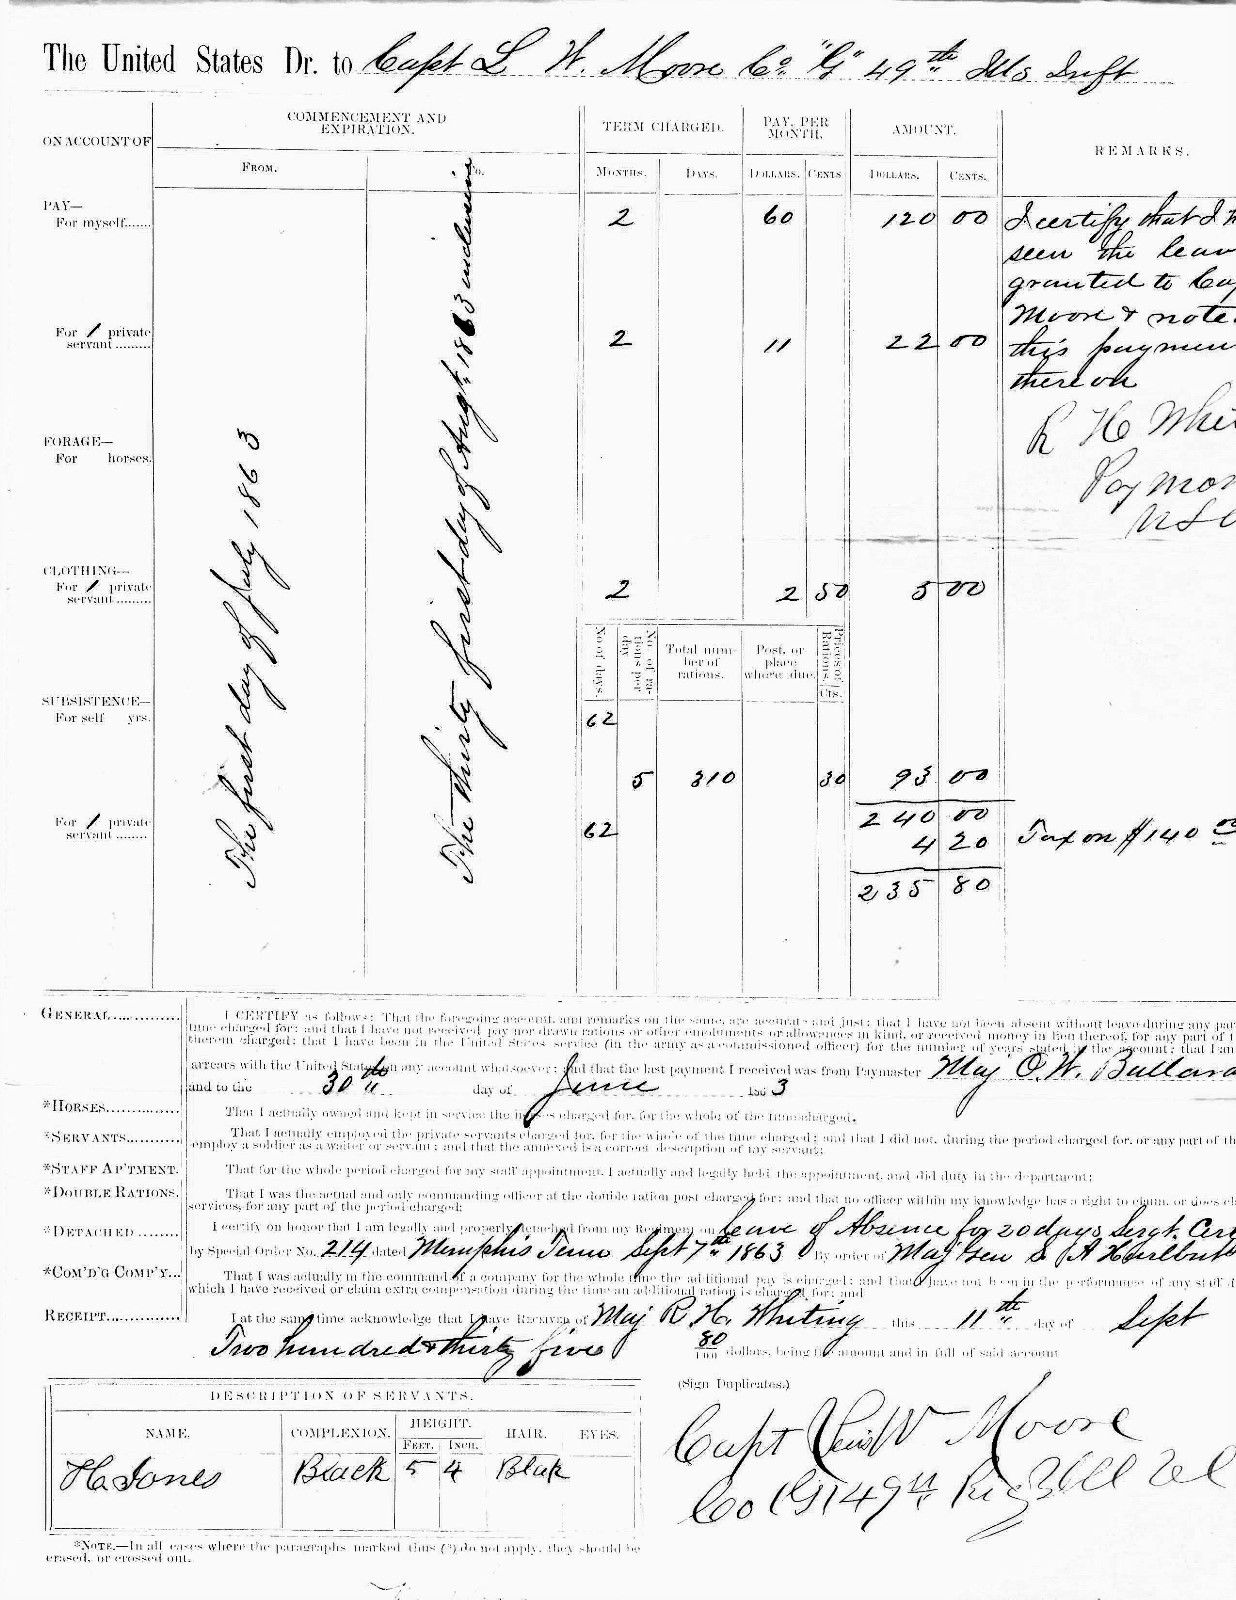 The United States Dr. to Capt L W. Moore Co "G" 49th Ills Inft
ON ACCOUNT OF
COMMENCEMENT AND EXPIRATION.
TERM CHARGED.
PAY, PER MONTH.
AMOUNT.
REMARKS.
FROM.
To.
MONTHS.
DAYS.
DOLLARS.
CENTS
DOLLARS.
CENTS.
The first day of July 1863
The thirty first day of Augt. 1863 inclusive
PAY—
For myself......
2 60 120 00
I certify that I
seen the
granted to
Moore & note
this
thereon
R H
For 1 private
servant.........
2 11 22 00
FORAGE—
For horses.
CLOTHING—
For 1 private
servant.........
2 2 50 5 00
No. of days.
No. of rations per day
Total number of rations.
Post, or place where due.
Price of Rations.
Cts.
SUBSISTENCE—
For self yrs.
62
5 310 30 93 00
240 00
For 1 private
servant........
62
4 20 Tax on $140 00
235 80
GENERAL.............. I CERTIFY as follows: That the foregoing account, and remarks on the same, are accurate and just; that I have not been absent without leave during any
time charged for; and that I have not received pay nor drawn rations or other emoluments or allowances in kind, or received money in lieu thereof, for any part of
therein charged; that I have been in the United States service (in the army as a commissioned officer) for the number of years stated in the account; that I am
arrears with the United States on any account whatsoever; and that the last payment I received was from Paymaster Maj O. W.
and to the 30th day of June 1863
*HORSES.............. That I actually owned and kept in service the horses charged for, for the whole of the time charged.
*SERVANTS........... That I actually employed the private servants charged for, for the whole of the time charged; and that I did not, during the period charged for, or any part of
employ a soldier as a waiter or servant; and that the annexed is a correct description of my servant;
*STAFF AP'TMENT. That for the whole period charged for my staff appointment, I actually and legally held the appointment, and did duty in the department;
*DOUBLE RATIONS. That I was the actual and only commanding officer at the double ration post charged for; and that no officer within my knowledge has a right to claim, or does
services, for any part of the period charged;
*DETACHED ........ I certify on honor that I am legally and properly detached from my Regiment on leave of Absence for 20 days Sergt.
by Special Order No. 214 dated Memphis Tenn Sept 7th 1863 By order of Maj Gen S A Hurlbut
*COM'D'G COMP'Y... That I was actually in the command of a company for the whole time the additional pay is charged; and that I have not been in the performance of any staff
which I have received or claim extra compensation during the time an additional ration is charged for; and
RECEIPT............... I at the same time acknowledge that I have RECEIVED of Maj R H. Whiting this 11th day of Sept
Two hundred & thirty five 80/100 dollars, being the amount and in full of said account
(Sign Duplicates.)
DESCRIPTION OF SERVANTS.
NAME.
COMPLEXION.
HEIGHT.
FEET.
INCH.
HAIR.
EYES.
H. Jones Black 5 4 Black
Capt W Moore
Co (G) 49th
*NOTE.—In all cases where the paragraphs marked thus (*) do not apply, they should be
erased, or crossed out.